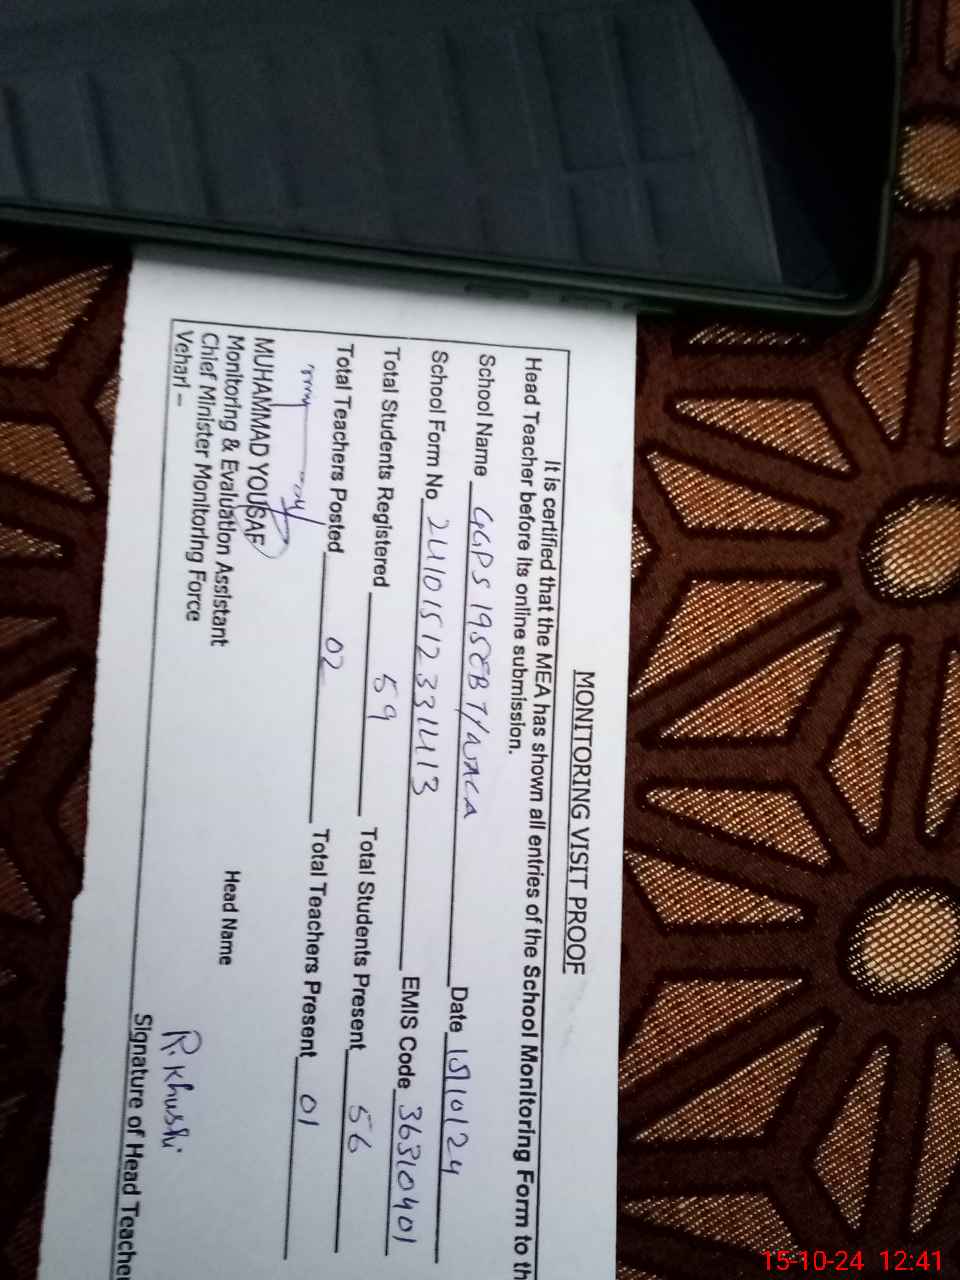 MONITORING VISIT PROOF
It is certified that the MEA has shown all entries of the School Monitoring Form to th
Head Teacher before its online submission.
School Name GGPS 195EB Date 15/10/24
School Form No 24101512331413 EMIS Code 36310401
Total Students Registered 59 Total Students Present 56
Total Teachers Posted 02 Total Teachers Present 01
MUHAMMAD YOUSAF
Monitoring & Evaluation Assistant
Chief Minister Monitoring Force
Vehari –
Head Name
R. Khushi
Signature of Head Teacher
15-10-24 12:41